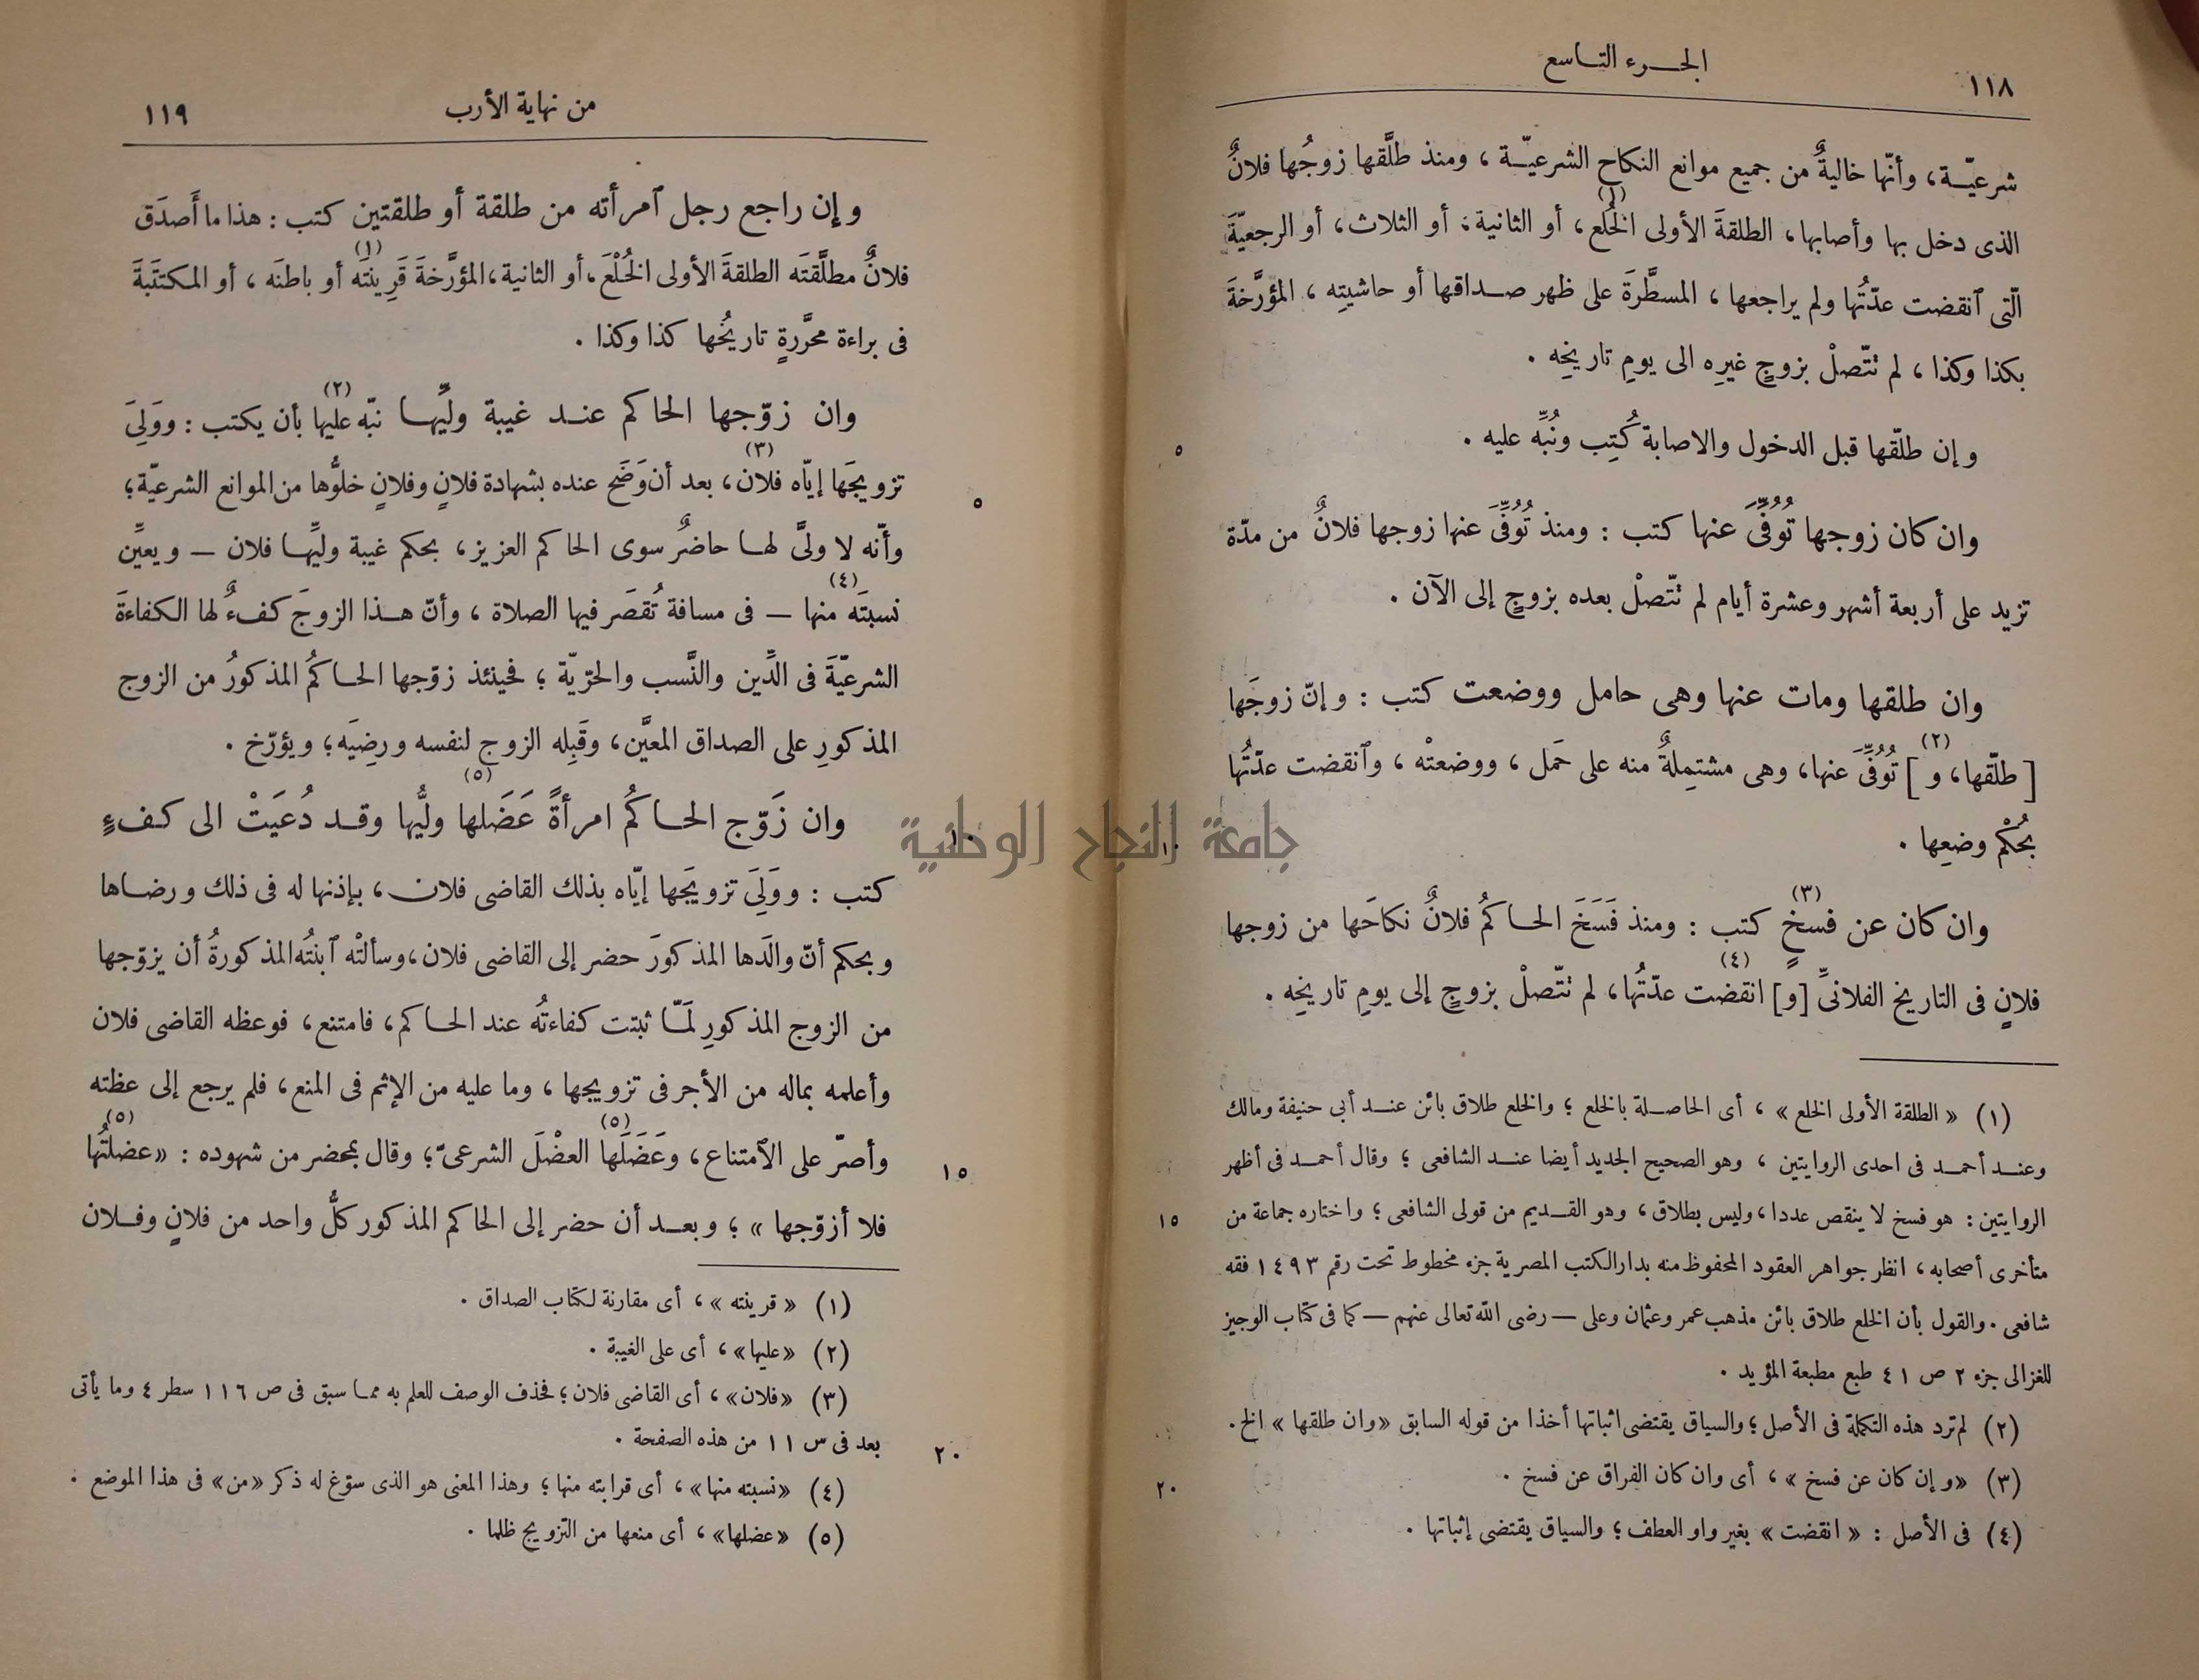 ١١٨
الجـــزء التـاسع
شرعيّـة، وأنّها خاليةٌ من جميع موانع النكاح الشرعيّـة ، ومنذ طلَّقها زوجُها فلانٌ
الذى دخل بها وأصابها، الطلقةَ الأولى الخُلع(١)، أو الثانية، أو الثلاث، أو الرجعيّةَ
الّتى ٱنقضت عدّتُها ولم يراجعها ، المسطَّرةَ على ظهر صـداقها أو حاشيتِه ، المؤرَّخةَ
بكذا وكذا ، لم تتّصلْ بزوجٍ غيرِه الى يومِ تاريخِه .
وإن طلّقها قبل الدخول والاصابة كُتِب ونُبِّه عليه .
٥
وان كان زوجها تُوُفِّىَ عنها كتب : ومنذ تُوُفِّىَ عنها زوجها فلانٌ من مدّة
تزيد على أربعة أشهر وعشرة أيام لم تتّصلْ بعده بزوجٍ إلى الآن .
وان طلقها ومات عنها وهى حامل ووضعت كتب : وإنّ زوجَها
[طلّقها، و(٢)] تُوُفِّىَ عنها، وهى مشتمِلةٌ منه على حَمل ، ووضعتْه ، وٱنقضت عدّتُها
بحُكْم وضعِها .
١٠
وان كان عن فسخٍ(٣) كتب : ومنذ فَسَخَ الحـاكمُ فلانٌ نكاحَها من زوجها
فلانٍ فى التاريخ الفلانىِّ [و](٤) انقضت عدّتُها، لم تتّصلْ بزوجٍ إلى يومِ تاريخِه .
(١) « الطلقة الأولى الخلع » ، أى الحاصـلة بالخلع ؛ والخلع طلاق بائن عنـد أبى حنيفة ومالك
وعنـد أحمـد فى احدى الروايتين ، وهو الصحيح الجديد أيضا عنـد الشافعى ؛ وقال أحمـد فى أظهر
الروايتين : هو فسخ لا ينقص عددا، وليس بطلاق، وهو القـديم من قولى الشافعى ؛ واختاره جماعة من
١٥
متأخرى أصحابه ، انظر جواهر العقود المحفوظ منه بدار الكتب المصرية جزء مخطوط تحت رقم ١٤٩٣ فقه
شافعى . والقول بأن الخلع طلاق بائن مذهب عمر وعثمان وعلى — رضى الله تعالى عنهم — كما فى كتاب الوجيز
للغزالى جزء ٢ ص ٤١ طبع مطبعة المؤيد .
(٢) لم ترد هذه التكملة فى الأصل ؛ والسياق يقتضى اثباتها أخذا من قوله السابق «وان طلقها» الخ .
(٣) «وإن كان عن فسخ » ، أى وان كان الفراق عن فسخ .
٢٠
(٤) فى الأصل : « انقضت » بغير واو العطف ؛ والسياق يقتضى إثباتها .
من نهاية الأرب
١١٩
وإن راجع رجل ٱمرأته من طلقة أو طلقتين كتب : هذا ما أَصدَق
فلانٌ مطلَّقتَه الطلقةَ الأولى الخُلْعَ، أو الثانية، المؤرَّخةَ قَرِينَتَه(١) أو باطنَه ، أو المكتتَبةَ
فى براءة محرَّرةٍ تاريخُها كذا وكذا .
وان زوّجها الحاكم عنـد غيبة وليِّهـا نبّه عليها(٢) بأن يكتب : ووَلِىَ
تزويجَها إيّاه فلان(٣)، بعد أن وَضَح عنده بشهادة فلانٍ وفلانٍ خلوُّها من الموانع الشرعيّة؛
٥
وأنّه لا ولىَّ لهـا حاضرٌ سوى الحاكم العزيز، بحكم غيبة وليِّهـا فلان — ويعيِّن
نسبتَه منها(٤) — فى مسافة تُقصَر فيها الصلاة ، وأنّ هـذا الزوجَ كفءٌ لها الكفاءةَ
الشرعيّةَ فى الدِّين والنَّسب والحرّيّة ؛ فحينئذ زوّجها الحـاكمُ المذكورُ من الزوج
المذكورِ على الصداق المعيَّن، وقَبِله الزوج لنفسه ورضِيَه؛ ويؤرّخ .
وان زَوّج الحـاكمُ امرأةً عَضَلها(٥) وليُّها وقـد دُعيَتْ الى كـفءٍ
١٠
كتب : ووَلِىَ تزويجَها إيّاه بذلك القاضى فلان ، بإذنها له فى ذلك ورضاها
وبحكم أنّ والدَها المذكورَ حضر إلى القاضى فلان، وسألتْه ٱبنتُه المذكورةُ أن يزوّجها
من الزوج المذكورِ لَمّـا ثبتت كفاءتُه عند الحـاكم، فامتنع، فوعظه القاضى فلان
وأعلمه بماله من الأجر فى تزويجها ، وما عليه من الإثم فى المنع، فلم يرجع إلى عظته
وأصرّ على الٱمتناع، وعَضَلَها(٥) العضْلَ الشرعىّ؛ وقال بمحضر من شهوده : «عضلتُها(٥)
١٥
فلا أزوّجها » ؛ وبعـد أن حضر إلى الحاكم المذكور كلُّ واحد من فلانٍ وفـلان
(١) « قرينته » ، أى مقارنة لكتاب الصداق .
(٢) «عليها» ، أى على الغيبة .
(٣) «فلان» ، أى القاضى فلان ؛ فحذف الوصف للعلم به ممـا سبق فى ص ١١٦ سطر ٤ وما يأتى
بعد فى س ١١ من هذه الصفحة .
٢٠
(٤) «نسبته منها» ، أى قرابته منها ؛ وهذا المعنى هو الذى سوّغ له ذكر «من» فى هذا الموضع .
(٥) «عضلها» ، أى منعها من التزويج ظلما .
جامعة النجاح الوطنية